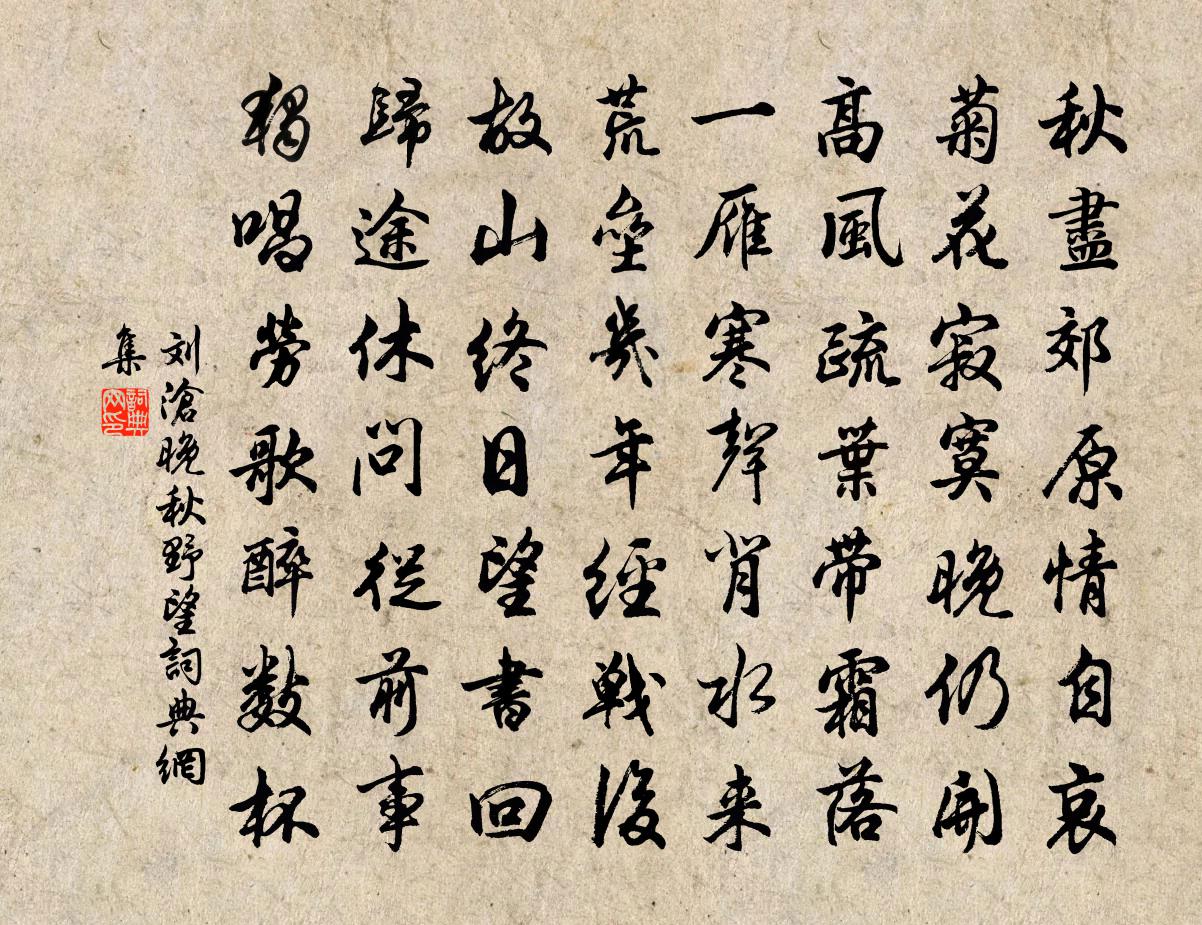 秋盡郊原情自哀
菊花寂寞晚仍開
高風疏葉帶霜落
一雁寒聲背水来
荒壘幾年經戰後
故山終日望書回
歸途休問從前事
獨唱勞歌醉數杯
刘滄晚秋野望詞典網
集
詞典网印